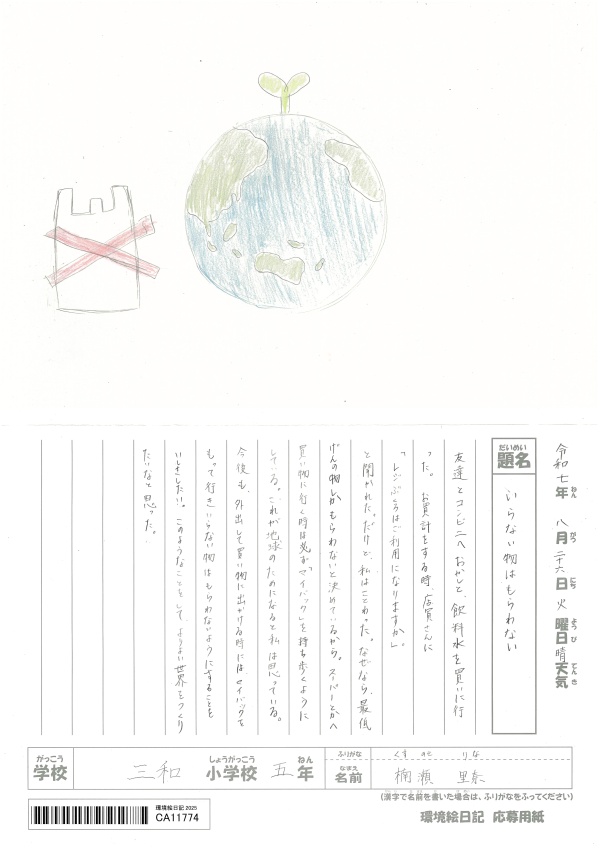 令和七年 八月二十六日 火曜日 天気 晴
ねん がつ にち ようび てんき
だいめい
題名 いらない物はもらわない
友達とコンビニへおかしと、飲料水を買いに行
った。お買計をする時、店員さんに
「レジぶくろはご利用になりますか。」
と聞かれた。だけど、私はことわった。なぜなら、最低
げんの物しかもらわないと決めているから。スーパーとかへ
買い物に行く時は必ず「マイバック」を持ち歩くように
している。これが地球のためになると私は思っている。
今後も、外出して買い物に出かける時にはマイバックを
もって行きいらない物はもらわないようにすることを
いしきしたい。このようなことをして、よりよい世界をつくり
たいなと思った。
がっこう しょうがっこう ねん
学校 三和小学校 五年
ふりがな くすのせ りな
なまえ
名前 楠瀬 里奈
(漢字で名前を書いた場合は、ふりがなをふってください)
環境絵日記 2025
CA11774
環境絵日記 応募用紙